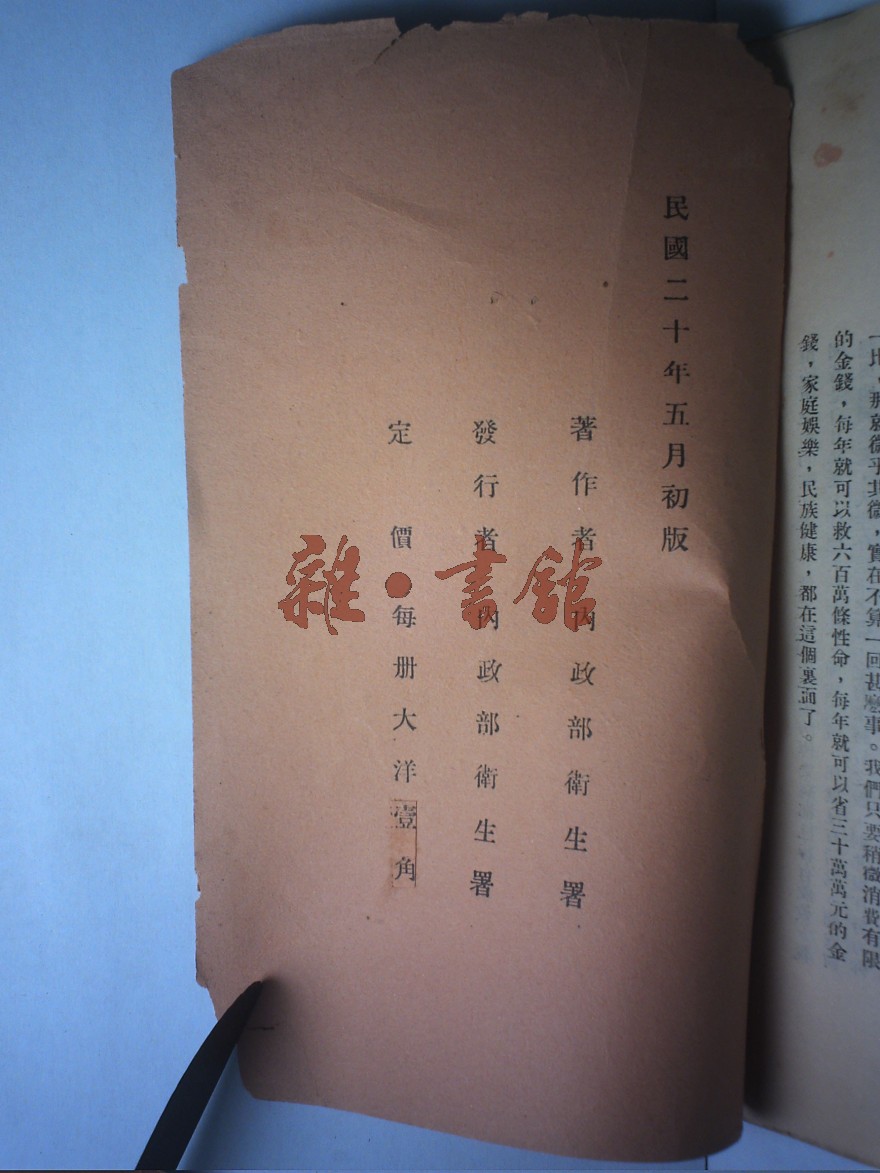 一比，那就微乎其微，實在不算一回甚麼事。我們只要稍微消費有限
的金錢，每年就可以救六百萬條性命，每年就可以省三十萬萬元的金
錢，家庭娛樂，民族健康，都在這個裏面了。
民國二十年五月初版
著作者 內政部衛生署
發行者 內政部衛生署
定價 每册大洋壹角
雜·書館